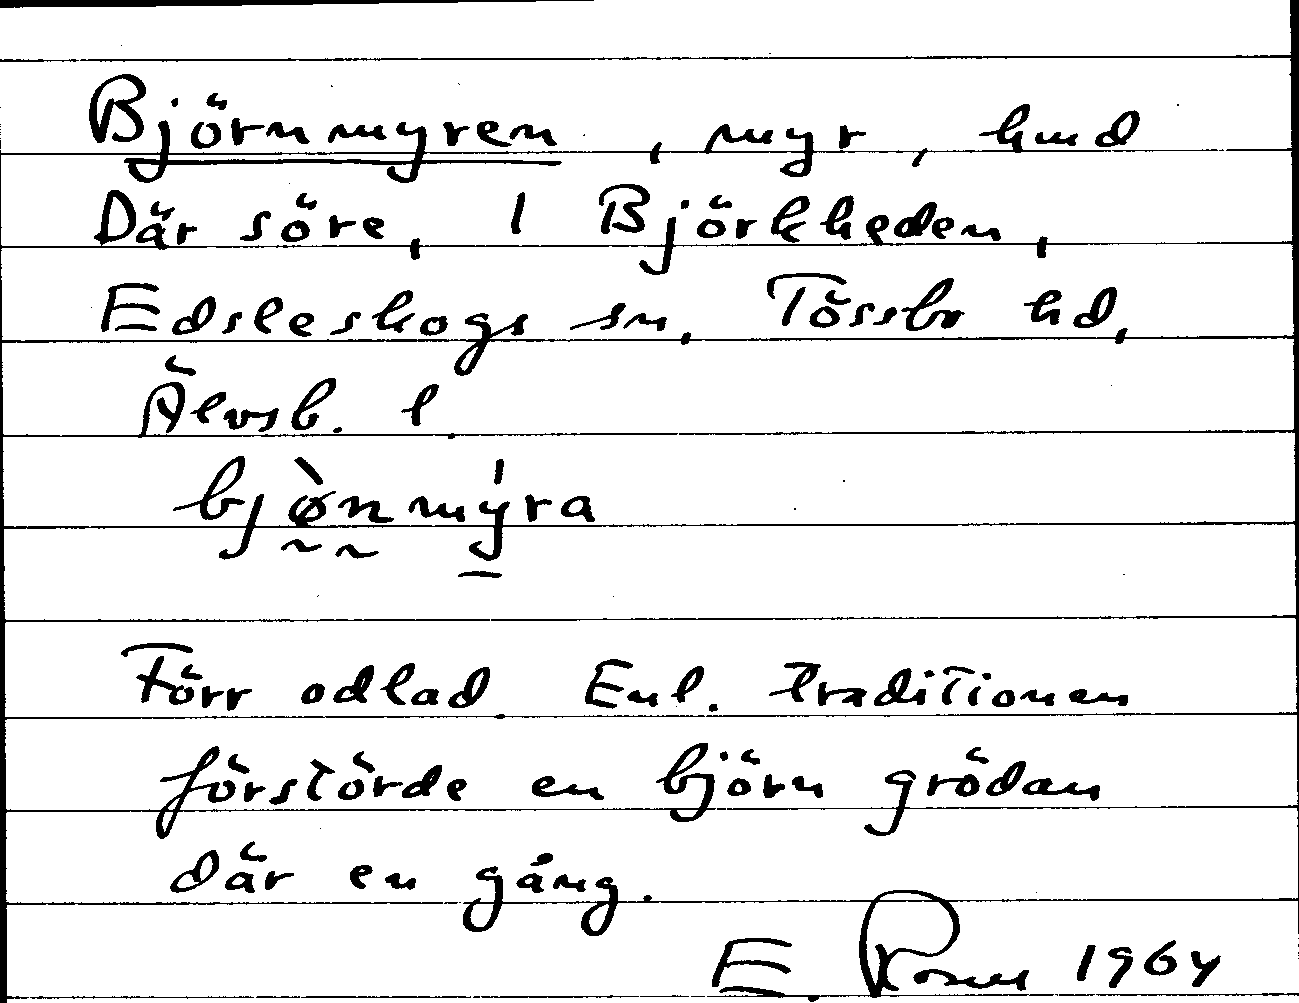 Björnmyren, myr, hmd
Där söre, 1 Björkheden,
Edsleskogs sn. Tössbo hd,
Älvsb. l.
bjø̀nmy̍ra
Förr odlad. Enl. traditionen
förstörde en björn grödan
där en gång.
E. 1964